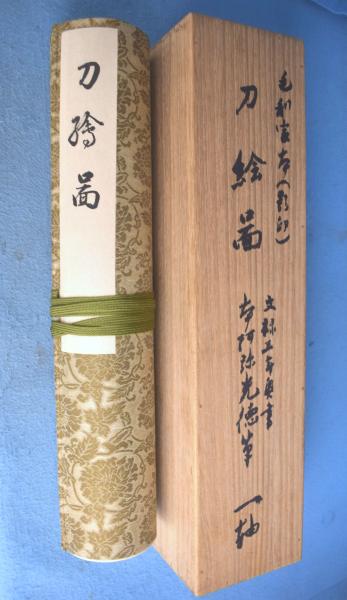 毛利家本(影印)
刀絵図
文禄三年奥書
本阿弥光徳筆 一軸
刀繪圖